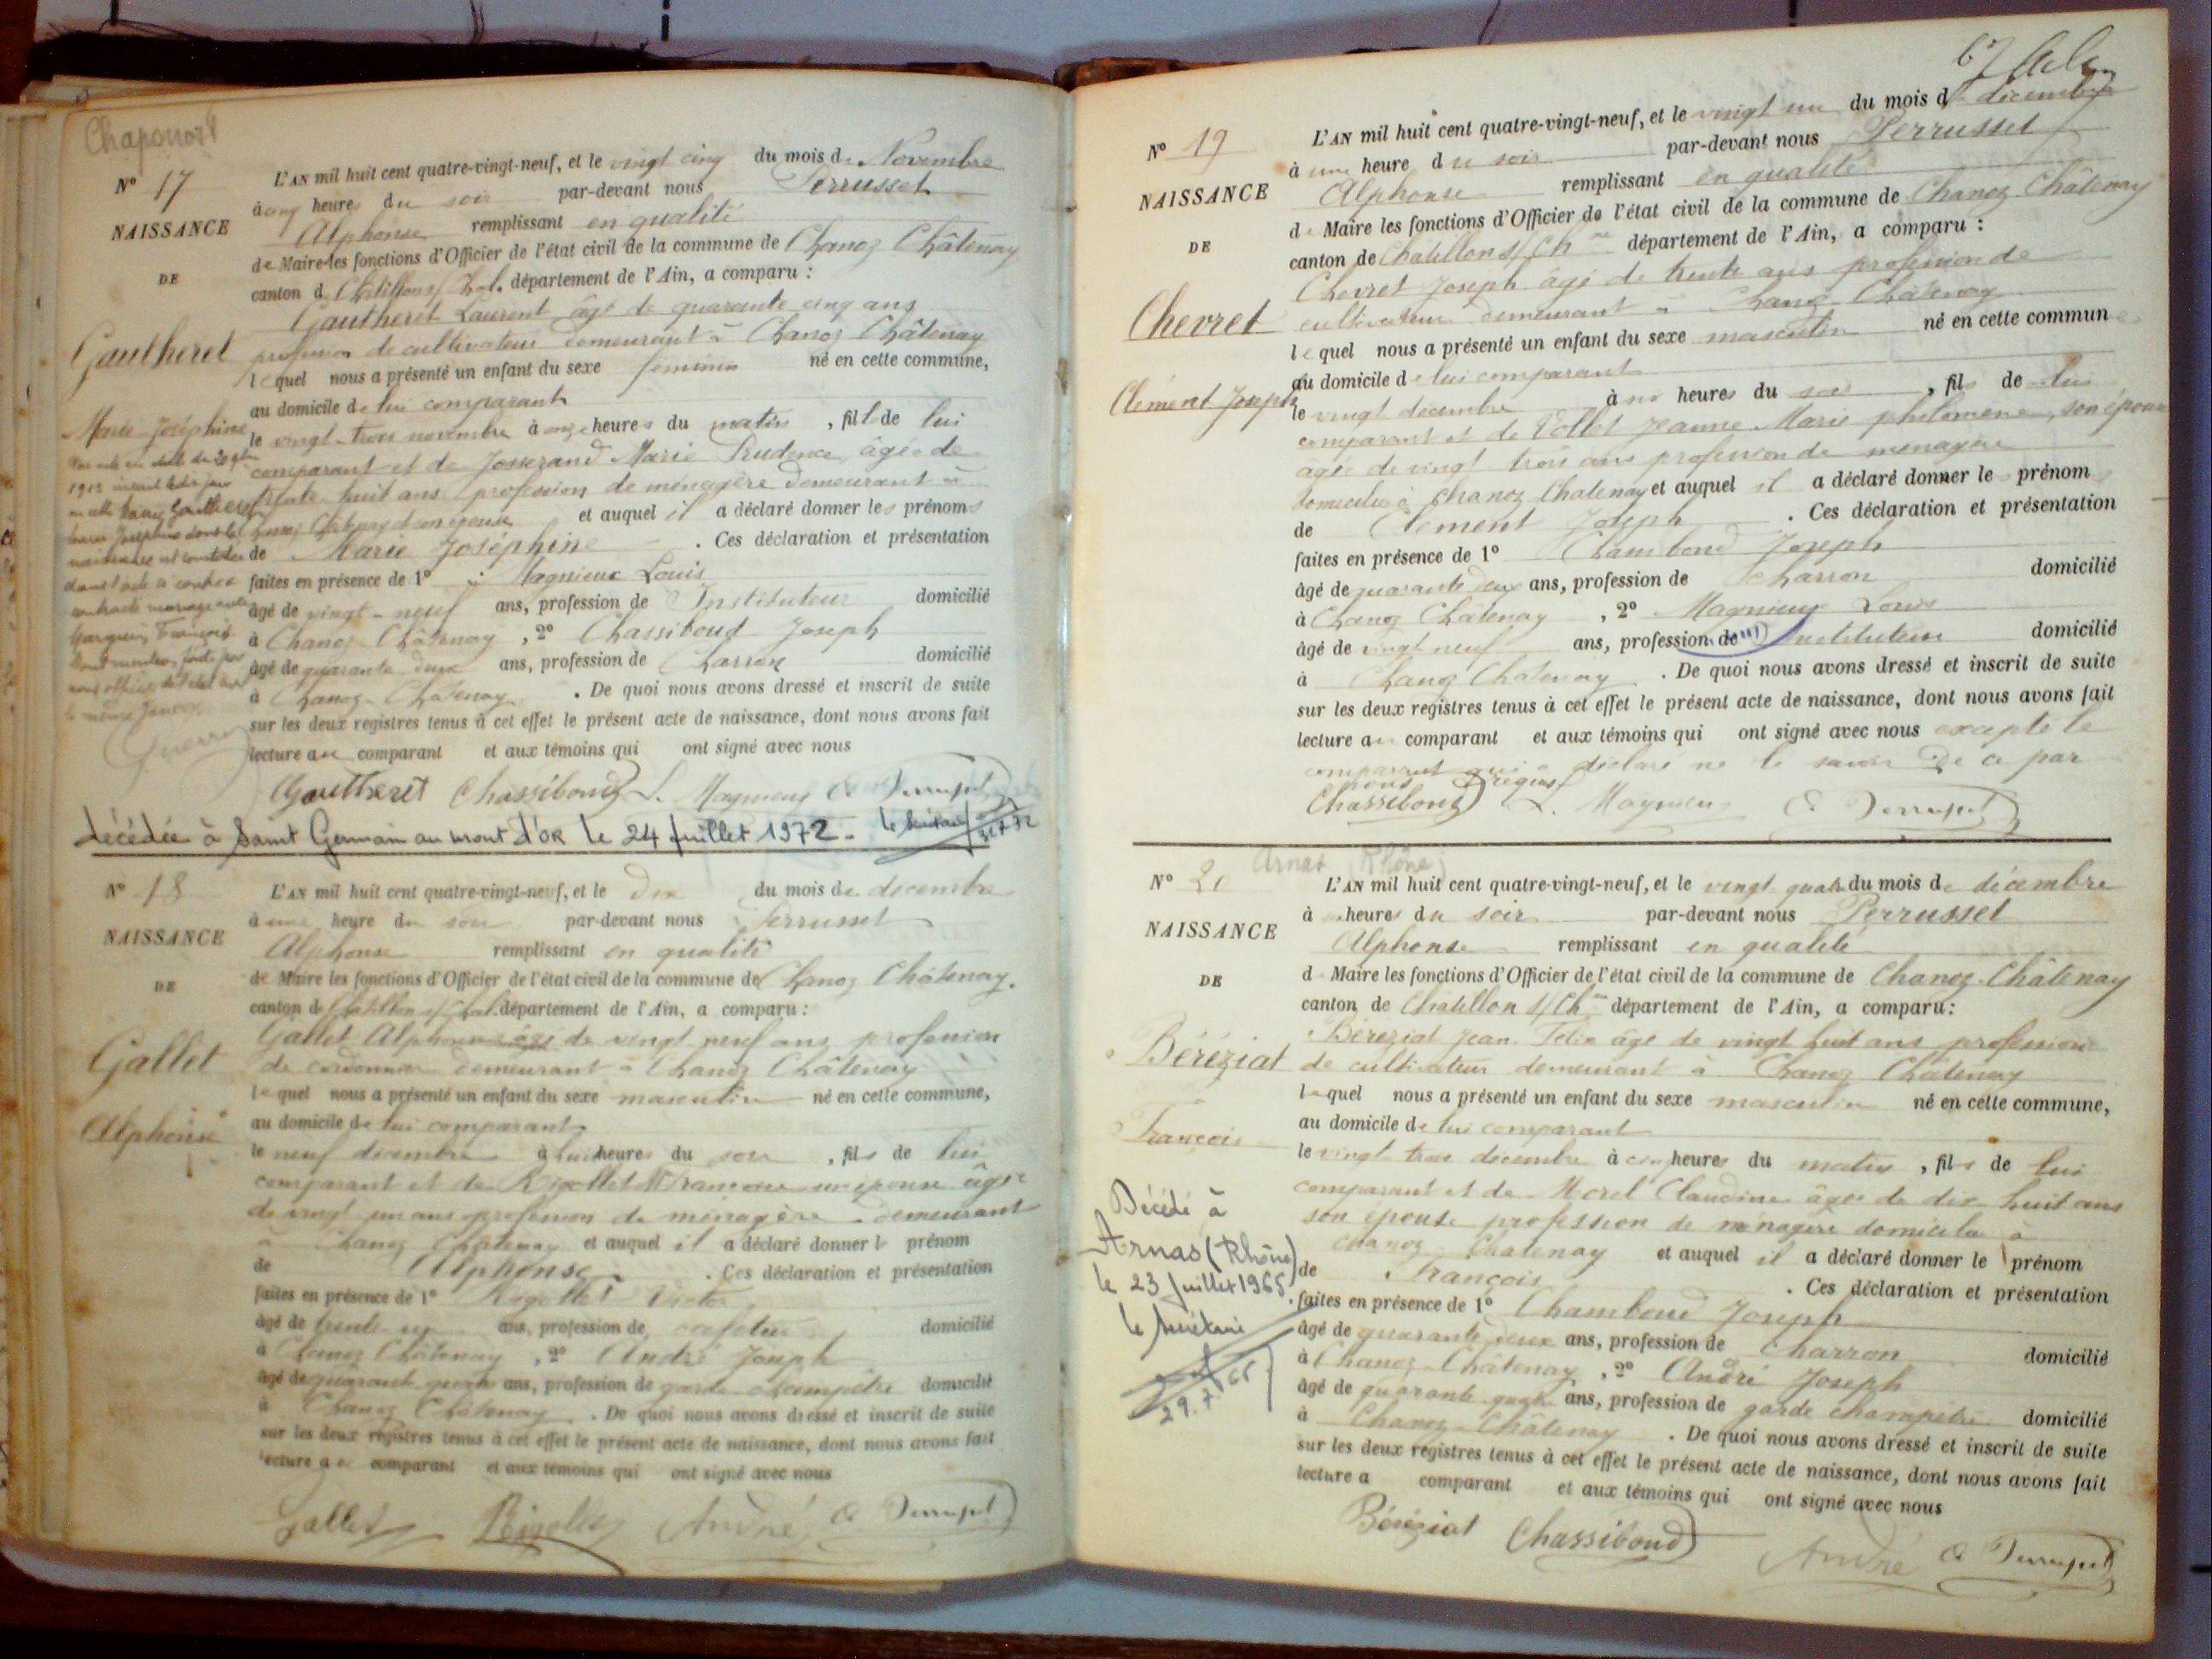 Chaponost
N° 17
NAISSANCE
DE
Gautheret
Marie Joséphine
L'AN mil huit cent quatre-vingt-neuf, et le vingt cinq du mois de Novembre
à cinq heures du soir par-devant nous Perrusset
Alphonse remplissant en qualité
de Maire les fonctions d'Officier de l'état civil de la commune de Chanoz Châtenay
canton d Châtillon s/ Chal. département de l'Ain, a comparu :
Gautheret Laurent âgé de quarante cinq ans
profession de cultivateur demeurant à Chanoz Châtenay
lequel nous a présenté un enfant du sexe féminin né en cette commune,
au domicile de lui comparant
le vingt-trois novembre à onze heures du matin , fille de lui
comparant et de Josserand Marie Prudence âgée de
trente huit ans profession de ménagère demeurant à
Chanoz Châtenay et auquel il a déclaré donner les prénoms
de Marie Joséphine . Ces déclaration et présentation
faites en présence de 1° Magnieux Louis
âgé de vingt-neuf ans, profession de Instituteur domicilié
à Chanoz Châtenay , 2° Chassiboud Joseph
âgé de quarante deux ans, profession de Charron domicilié
à Chanoz Châtenay . De quoi nous avons dressé et inscrit de suite
sur les deux registres tenus à cet effet le présent acte de naissance, dont nous avons fait
lecture au comparant et aux témoins qui ont signé avec nous
Gautheret Chassiboud L. Magnieux A Perrusset
décédée à Saint Germain au mont d'Or le 24 Juillet 1972.
N° 18
NAISSANCE
DE
Gallet
Alphonse
L'AN mil huit cent quatre-vingt-neuf, et le dix du mois de décembre
à une heure du soir par-devant nous Perrusset
Alphonse remplissant en qualité
de Maire les fonctions d'Officier de l'état civil de la commune de Chanoz Châtenay.
canton de Châtillon s/ Chal. département de l'Ain, a comparu :
Gallet Alphonse âgé de vingt neuf ans profession
de cordonnier demeurant à Chanoz Châtenay
lequel nous a présenté un enfant du sexe masculin né en cette commune,
au domicile de lui comparant
le neuf décembre à heures du soir , fils de lui
comparant et de Rigollet Françoise son épouse âgée
de vingt un ans profession de ménagère demeurant
à Chanoz Châtenay et auquel il a déclaré donner le prénom
de Alphonse . Ces déclaration et présentation
faites en présence de 1° Rigollet Victor
âgé de trente un ans, profession de cafetier domicilié
à Chanoz Châtenay , 2° André Joseph
âgé de quarante quatre ans, profession de garde champêtre domicilié
à Chanoz Châtenay . De quoi nous avons dressé et inscrit de suite
sur les deux registres tenus à cet effet le présent acte de naissance, dont nous avons fait
lecture au comparant et aux témoins qui ont signé avec nous
Gallet Rigollet André A Perrusset
67
N° 19
NAISSANCE
DE
Chevret
Clément Joseph
L'AN mil huit cent quatre-vingt-neuf, et le vingt un du mois de décembre
à une heure du soir par-devant nous Perrusset
Alphonse remplissant en qualité
de Maire les fonctions d'Officier de l'état civil de la commune de Chanoz Châtenay
canton de Châtillon s/ Ch^ne département de l'Ain, a comparu :
Chevret Joseph âgé de trente ans profession de
cultivateur demeurant à Chanoz Châtenay
lequel nous a présenté un enfant du sexe masculin né en cette commune
au domicile de lui comparant
le vingt décembre à heures du soir , fils de lui
comparant et de Vollet Jeanne Marie philomène, son épouse
âgée de vingt trois ans profession de ménagère
domiciliée à Chanoz Chatenay et auquel il a déclaré donner les prénom
de Clément Joseph . Ces déclaration et présentation
faites en présence de 1° Chambond Joseph
âgé de quarante deux ans, profession de charron domicilié
à Chanoz Châtenay , 2° Magnieux Louis
âgé de vingt neuf ans, profession de Instituteur domicilié
à Chanoz Châtenay . De quoi nous avons dressé et inscrit de suite
sur les deux registres tenus à cet effet le présent acte de naissance, dont nous avons fait
lecture au comparant et aux témoins qui ont signé avec nous excepté le
comparant qui a déclaré ne le savoir De ce par
nous requis
Chassiboud L. Magnieux A Perrusset
Arnas (Rhône)
N° 20
NAISSANCE
DE
Béréziat
François
Décédé à
Arnas (Rhône)
le 23 Juillet 1965.
le Secrétaire
29.7.65
L'AN mil huit cent quatre-vingt-neuf, et le vingt quatre du mois de décembre
à heures du soir par-devant nous Perrusset
Alphonse remplissant en qualité
de Maire les fonctions d'Officier de l'état civil de la commune de Chanoz-Châtenay
canton de Châtillon s/Ch^ne département de l'Ain, a comparu:
Béréziat Jean Félix âgé de vingt huit ans profession
de cultivateur demeurant à Chanoz Châtenay
lequel nous a présenté un enfant du sexe masculin né en cette commune,
au domicile de lui comparant
le vingt trois décembre à cinq heures du matin , fils de lui
comparant et de Morel Claudine âgée de dix huit ans
son épouse profession de ménagère domiciliée à
Chanoz Chatenay et auquel il a déclaré donner le prénom
de François . Ces déclaration et présentation
faites en présence de 1° Chamboud Joseph
âgé de quarante deux ans, profession de Charron domicilié
à Chanoz-Châtenay , 2° André Joseph
âgé de quarante quatre ans, profession de garde champêtre domicilié
à Chanoz-Châtenay . De quoi nous avons dressé et inscrit de suite
sur les deux registres tenus à cet effet le présent acte de naissance, dont nous avons fait
lecture a comparant et aux témoins qui ont signé avec nous
Béréziat Chassiboud André A Perrusset